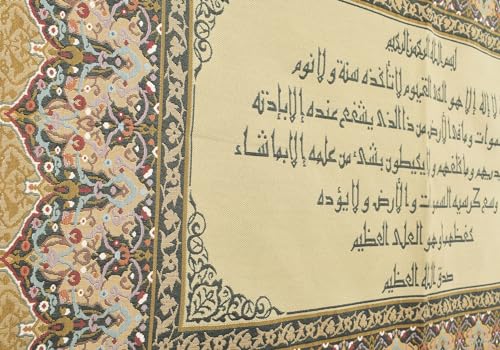 بسم الله الرحمن الرحيم
اله الا هو الحي القيوم لا تأخذه سنة ولا نوم
السموات وما في الأرض من ذا الذي يشفع عنده إلا بإذنه
يديهم وما خلفهم ولا يحيطون بشئ من علمه إلا بما شاء
وسع كرسيه السموت والأرض ولا يؤده
حفظهما وهو العلي العظيم
صدق الله العظيم